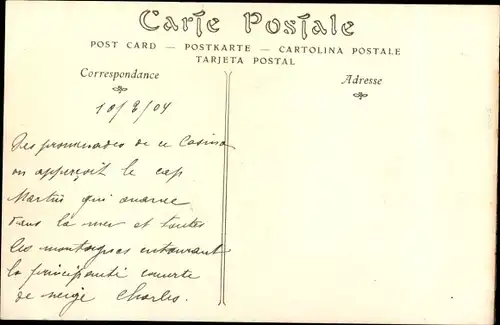 Carte Postale
POST CARD — POSTKARTE — CARTOLINA POSTALE
TARJETA POSTAL
Correspondance
Adresse
10/3/04
Des promenades de ce Casino
on apperçoit le cap
Martin qui avance
dans la mer et toutes
les montagnes entourant
la principauté couverte
de neige Charles.